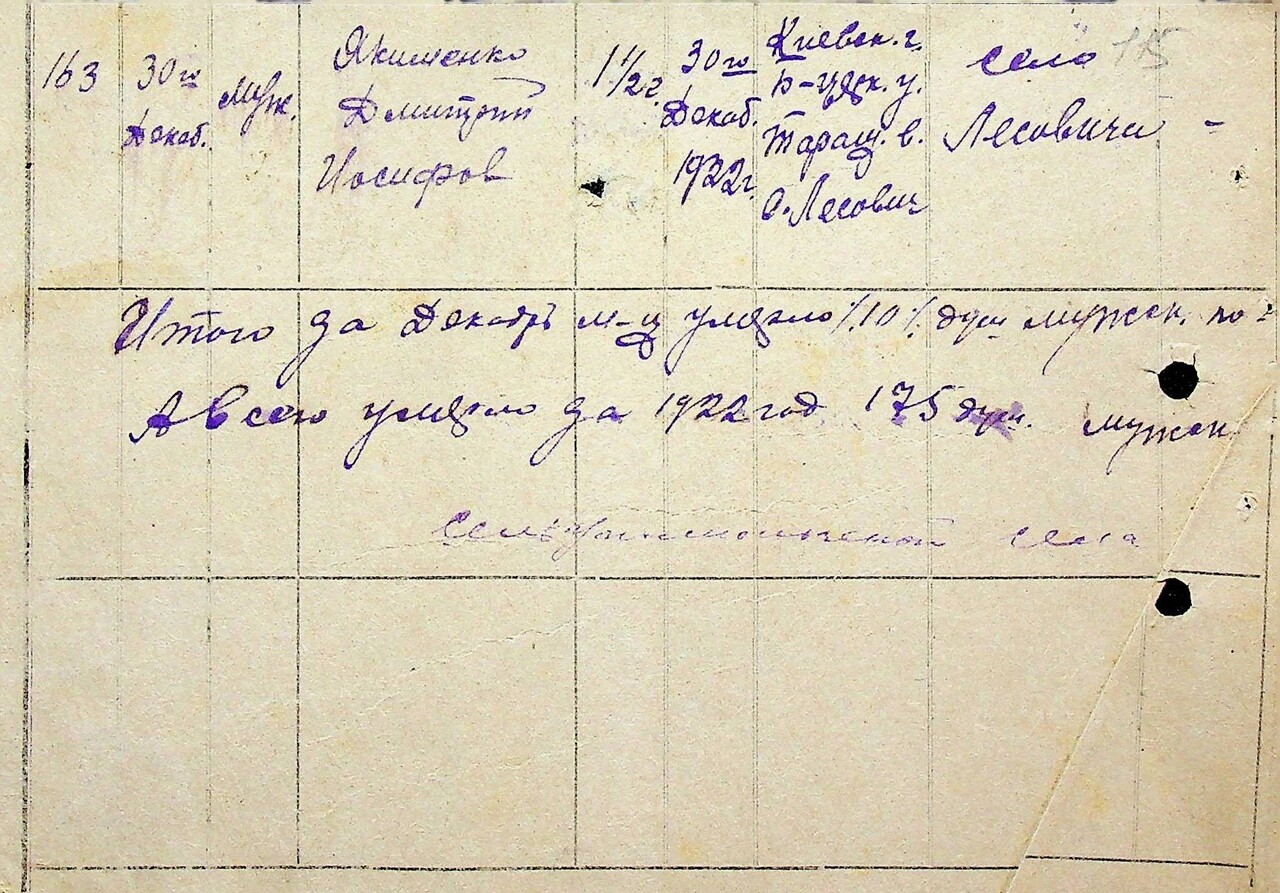 163 30го Декаб. Муж. Якименко Дмитрий Иосифов 1 1/2 г. 30го Декаб. 1922 г. Киевск. г. Б-церк. у. Таращ. в. с. Лесович село Лесовичи - 115
Итого за Декабрь м-ц умерло 10 душ мужск. по-
А всего умерло за 1922 год 175 душ. мужск
села